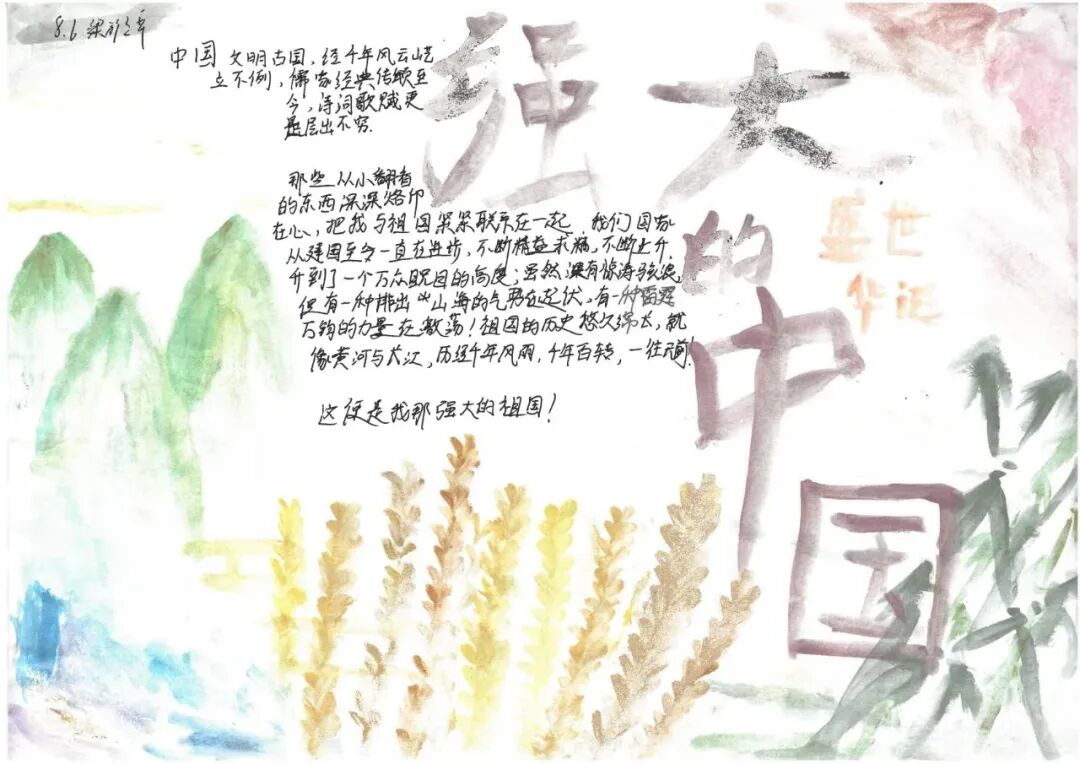 8.6 梁
强大
的
中
国
盛世
华诞
中国 文明古国，经千年风云屹
立不倒，儒家经典传颂至
今，诗词歌赋更
是层出不穷.
那些从小翻看
的东西深深烙印
在心，把我与祖国紧紧联系在一起.我们国家
从建国至今一直在进步，不断精益求精，不断上升.
升到了一个万众瞩目的高度；虽然没有惊涛骇浪，
但有一种排出 山海的气势在起伏，有一种雷霆
万钧的力量在激荡！祖国的历史悠久绵长，就
像黄河与长江，历经千年风雨，千年百转，一往无前！
这便是我那强大的祖国！